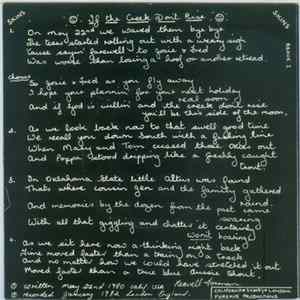 SKINS
☺ If the Creek Don't Rise ☺
SKINS
1. On May 22nd we waved them bye bye
The tears started rolling out with a weary sigh
Cause sayin' farewell to Josie & Fred
Was worse than losing a hoof or another steed.
chorus
So Josie & Fred as you fly away
I hope your plannin' for your next holiday
real soon
and if God is willin and the creek don't rise
you'll be this side of the moon.
2. As we look back now to that swell good time
We recall you down South with a feeling fine
When Mary and Tom cussed those out
and Poppa stood dripping like a freshly caught
trout.
3. In Oklahoma State little Altus was found
Thats where cousin Gen and the family gathered
round
And memories by the dozen from the past came
With all that giggling and chatter it certainly
wont boring!
4. As we sit here now a-thinking right back
Time moved faster than a train on a track
and no matter how we could have stretched it out
Moved faster than a true blue Aussie shout.
☺ written May 22nd 1980 Calif. USA
☺ recorded January 1982 London England.